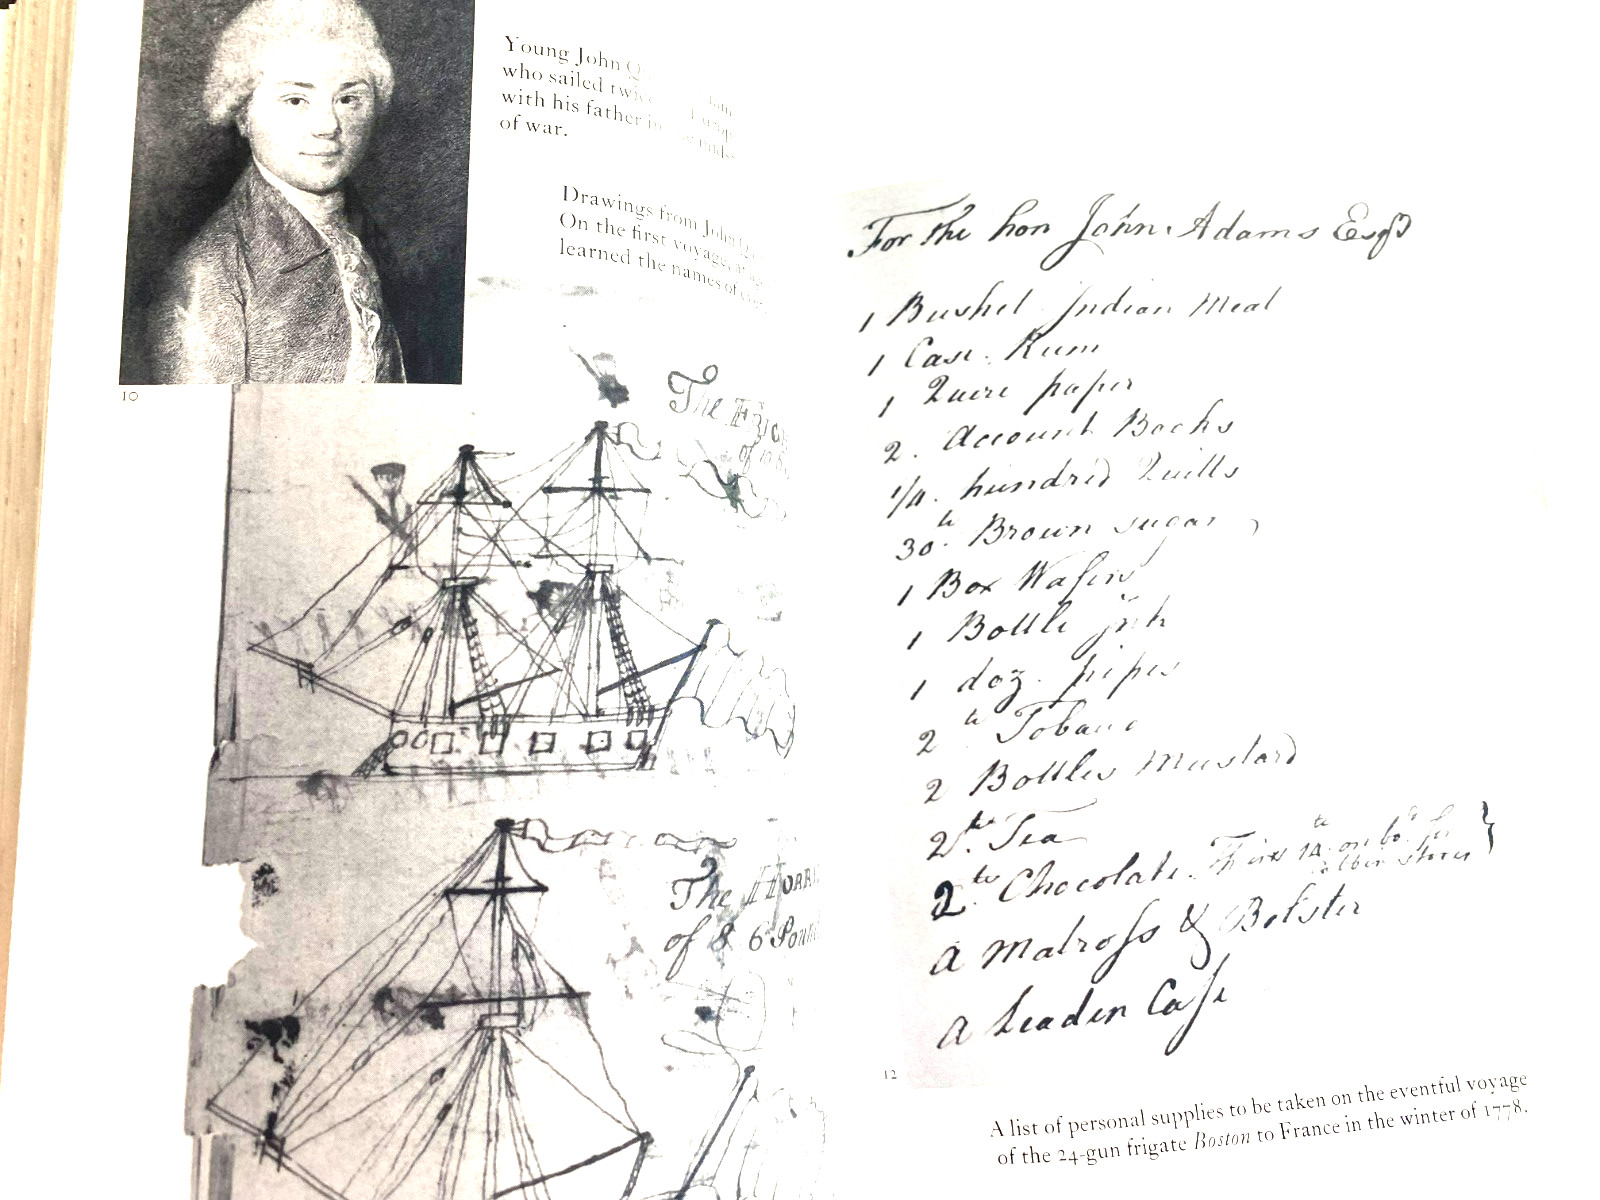 Young John Q
who sailed twice
with his father in
of war.
Drawings from John Q
On the first voyage, at
learned the names of
10
The
of
The HORR
of 8 6 Poun
For the hon John Adams Esqr
1 Bushel Indian Meal
1 Case Rum
1 Quire paper
2. Account Books
1/4. hundred Quills
30 Brown sugar
1 Box Wafers
1 Bottle Ink
1 doz. pipes
2 Tobacco
2 Bottles Mustard
2 Tea
2 Chocolate. on
A Matross & Bolster
A Leaden Case
12
A list of personal supplies to be taken on the eventful voyage
of the 24-gun frigate Boston to France in the winter of 1778.